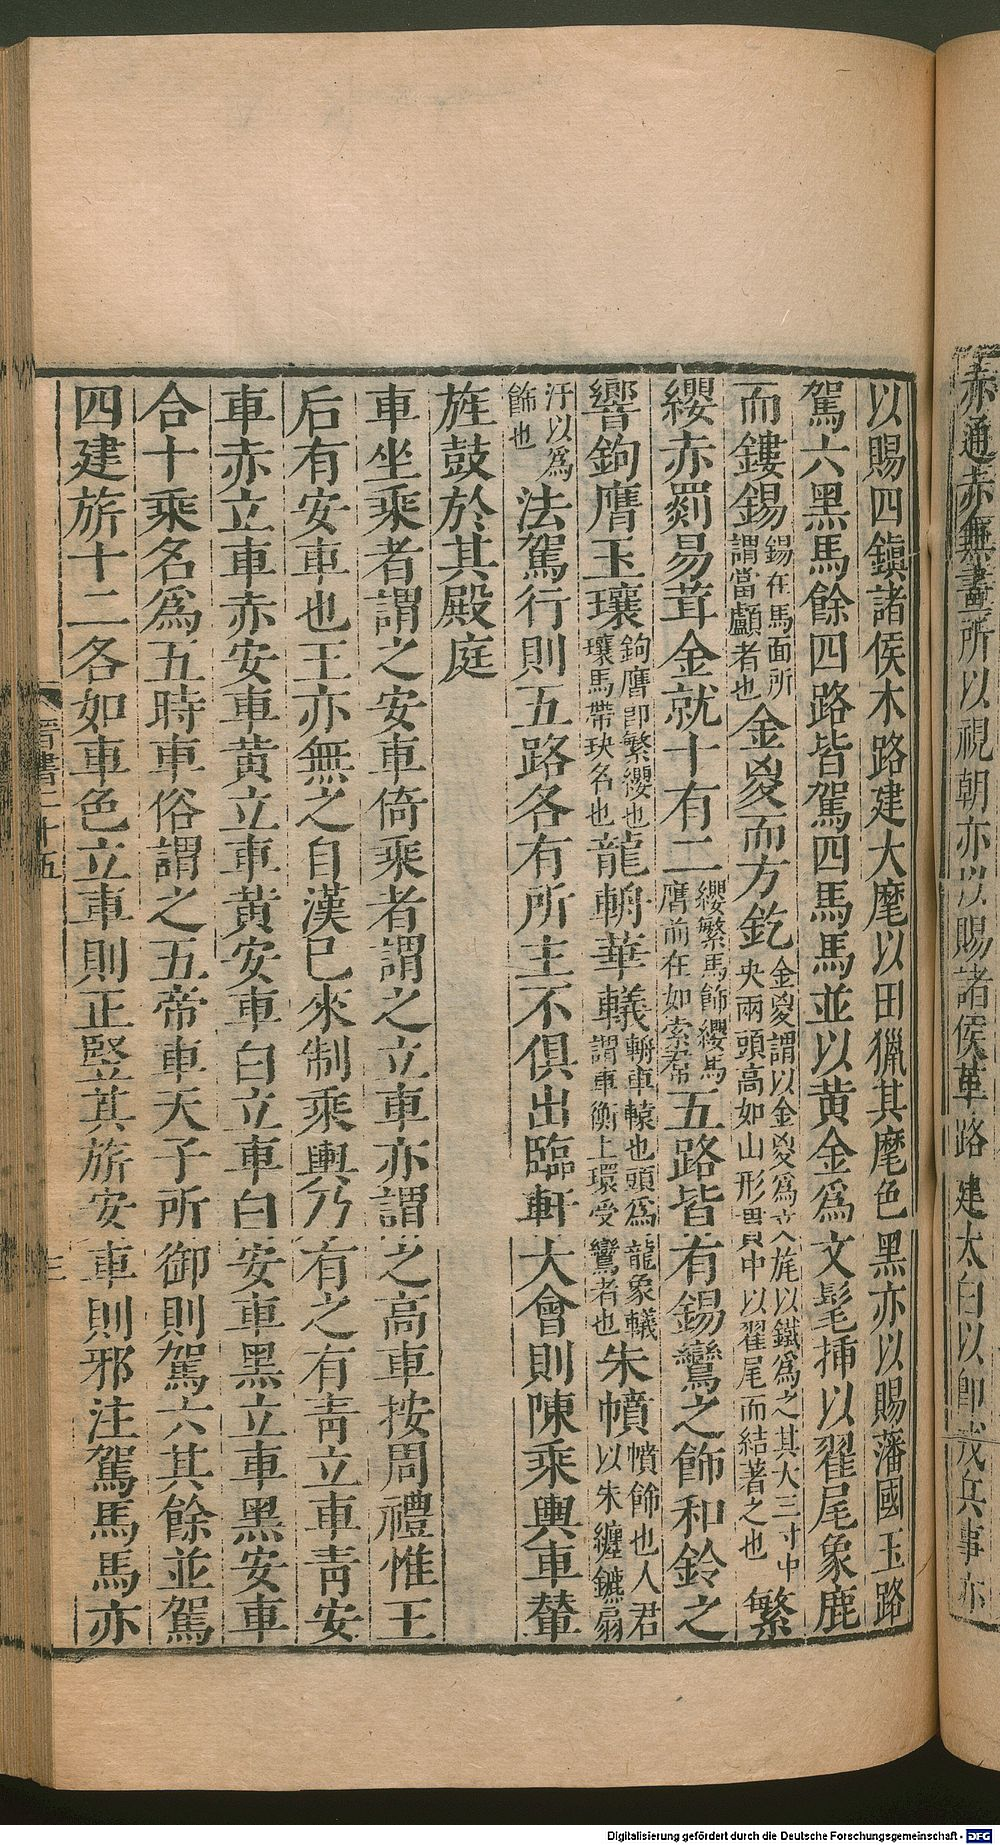 赤通赤無畫所以視朝亦以賜諸侯革路建太白以卽戎兵事亦
以賜四鎭諸侯木路建大麾以田獵其麾色黑亦以賜藩國玉路
駕六黑馬餘四路皆駕四馬馬並以黄金爲文髦揷以翟尾象鹿
而鏤鍚鍚在馬面所謂當顱者也金㚇而方釳金㚇謂以金㚇爲文旄以鐵爲之其大三寸中央兩頭高如山形貫中以翟尾而結著之也繁
纓赤罽易茸金就十有二纓繁馬飾纓馬膺前在如索帬五路皆有鍚鸞之飾和鈴之
響鉤膺玉瓖鉤膺卽繁纓也瓖馬帶玦名也龍輈華轙輈車轅也頭爲龍象轙謂車衡上環受鸞者也朱幩幩飾也人君以朱纏鑣扇
汗以爲飾也法駕行則五路各有所主不俱出臨軒大會則陳乘輿車輦
旌鼓於其殿庭
車坐乘者謂之安車倚乘者謂之立車亦謂之高車按周禮惟王
后有安車也王亦無之自漢已來制乘輿乃有之有靑立車靑安
車赤立車赤安車黄立車黄安車白立車白安車黑立車黑安車
合十乘名爲五時車俗謂之五帝車天子所御則駕六其餘並駕
四建旂十二各如車色立車則正竪其旂安車則邪注駕馬馬亦
晋書二十五
三
Digitalisierung gefördert durch die Deutsche Forschungsgemeinschaft - DFG